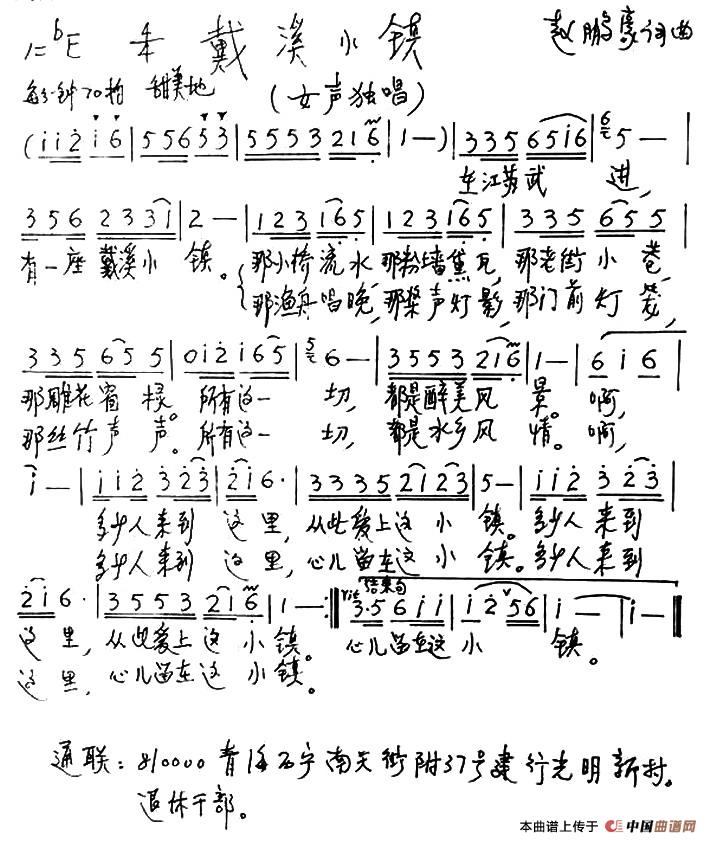 1=♭E 戴溪小镇 赵鹏豪词曲
每分钟70拍 甜美地 (女声独唱)
(i i 2 i 6 | 5 5 6 5 3 | 5 5 5 3 2 1 6 | 1 — ) | 3 3 5 6 5 i 6 | 5 — |
在江苏武 进,
3 5 6 2 3 3 1 | 2 — | 1 2 3 1 6 5 | 1 2 3 1 6 5 | 3 3 5 6 5 5 |
有一座 戴溪小 镇。 那小桥流水,那粉墙黛瓦,那老街小 巷,
那渔舟唱晚,那桨声灯影,那门前灯笼,
3 3 5 6 5 5 | 0 i 2 i 6 5 | 6 — | 3 5 5 3 2 1 6 | 1 — | 6 i 6 |
那雕花窗 棂。所有这一 切, 都是醉美风 景。 啊,
那丝竹声 声。所有这一 切, 都是水乡风 情。 啊,
i — | i i 2 3 2 3 | 2 i 6 · | 3 3 3 5 2 1 2 3 | 5 — | i i 2 3 2 3 |
多少人来到 这里, 从此爱上这 小 镇。多少人来到
多少人来到 这里, 心儿留在这 小 镇。多少人来到
2 i 6 · | 3 5 5 3 2 1 6 | 1 — :‖ rit 结束句 3·5 6 i i | i 2 5 6 | i — | i — ‖
这里, 从此爱上这 小镇。 心儿留在这 小 镇。
这里, 心儿留在这 小镇。
通联:810000青海西宁南大街附37号建行光明新村。
退休干部。
本曲谱上传于 中国曲谱网